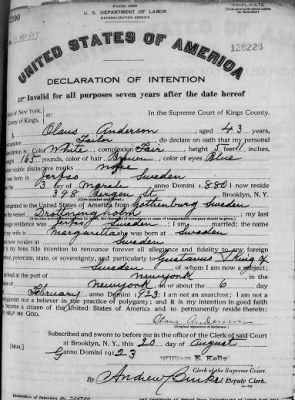 TRIPLICATE
U. S. DEPARTMENT OF LABOR
NATURALIZATION SERVICE
UNITED STATES OF AMERICA
125220
DECLARATION OF INTENTION
Invalid for all purposes seven years after the date hereof
State of New York,
County of Kings, ss:
In the Supreme Court of Kings County.
I, Olaus Anderson, aged 43 years,
occupation Tailor, do declare on oath that my personal
description is: Color White, complexion Fair, height 5 feet inches,
weight 165 pounds, color of hair Brown, color of eyes Blue
other visible distinctive marks none
I was born in Sweden
on the 3 day of March, anno Domini 1880; I now reside
at 598 Bergen St., Brooklyn, N. Y.
I emigrated to the United States of America from Gothenburg Sweden
on the vessel Drottningholm; my last
foreign residence was Sweden; I am married; the name
of my wife is Margareta; she was born at Sweden
and now resides at Sweden
It is my bona fide intention to renounce forever all allegiance and fidelity to any foreign
prince, potentate, state, or sovereignty, and particularly to Gustavus V King of
Sweden, of whom I am now a subject;
I arrived at the port of New York, in the
State of New York, on or about the 6 day
of February, anno Domini 1923; I am not an anarchist; I am not a
polygamist nor a believer in the practice of polygamy; and it is my intention in good faith
to become a citizen of the United States of America and to permanently reside therein:
SO HELP ME GOD.
Olaus Anderson
(Original signature of declarant.)
Subscribed and sworn to before me in the office of the Clerk of said Court
at Brooklyn, N. Y., this 20 day of August
anno Domini 1923
[SEAL]
Kelly
Clerk of the Supreme Court.
By Andrew, Deputy Clerk.